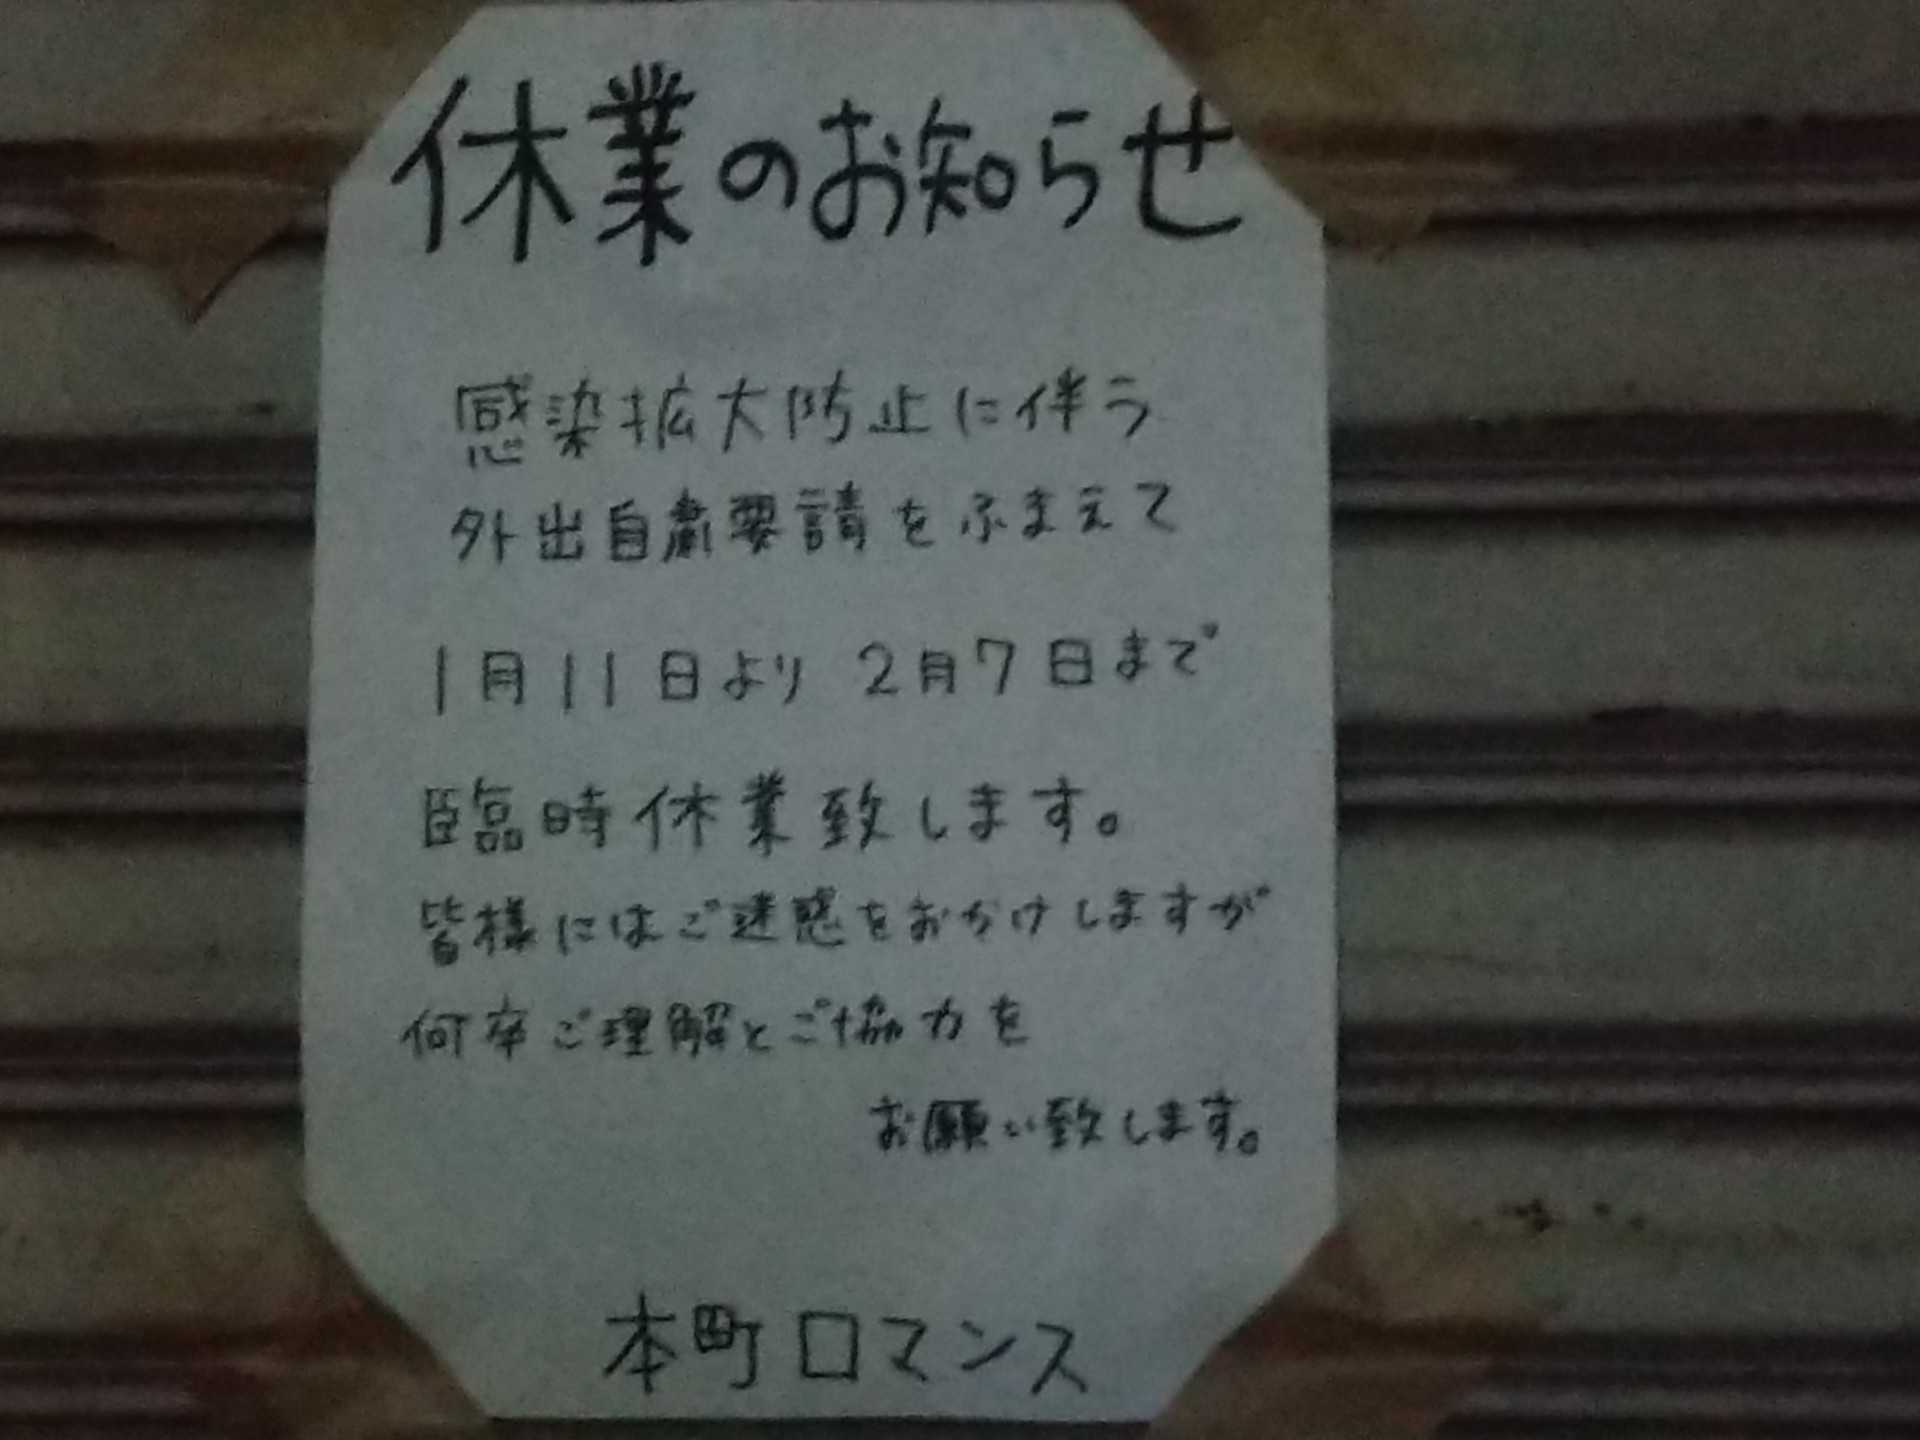 休業のお知らせ
感染拡大防止に伴う
外出自粛要請をふまえて
1月11日より 2月7日まで
臨時休業致します。
皆様にはご迷惑をおかけしますが
何卒ご理解とご協力を
お願い致します。
本町ロマンス